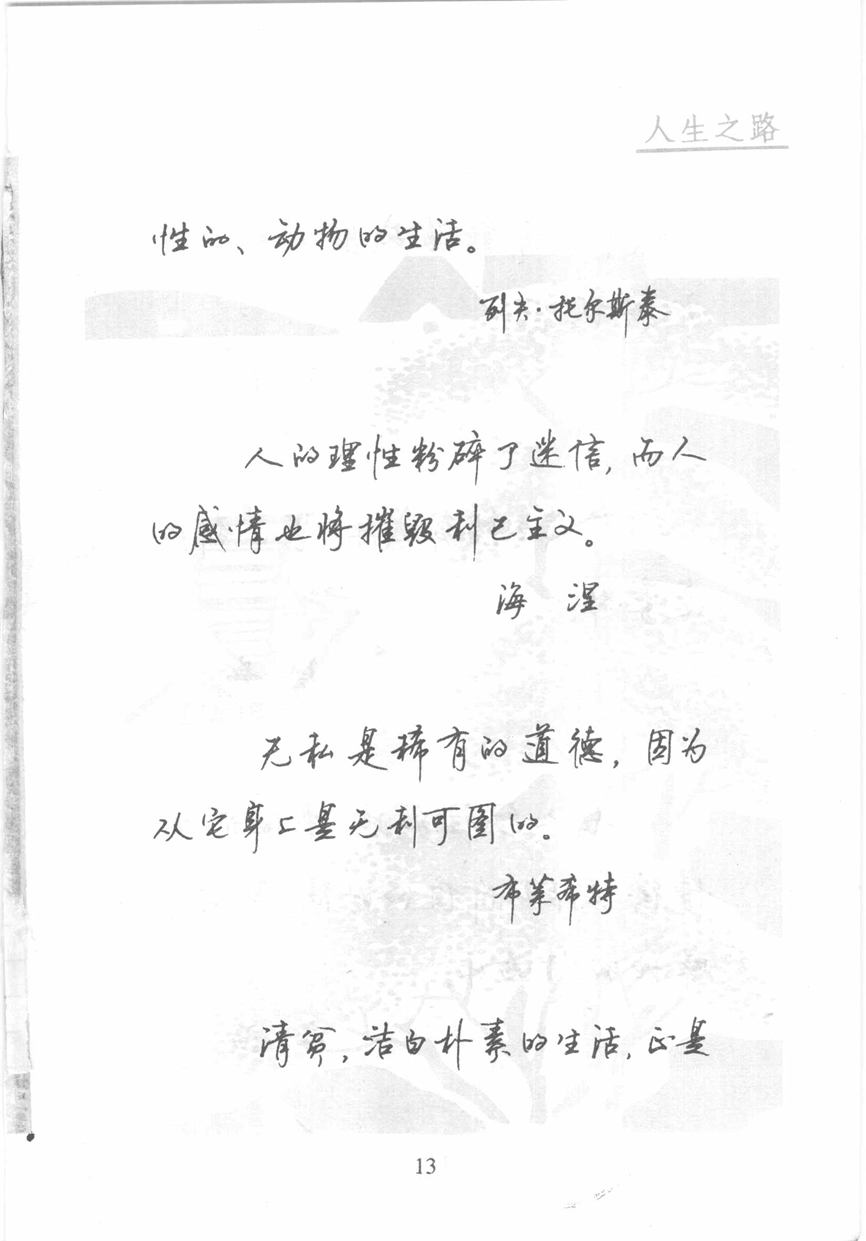 人生之路
性的、动物的生活。
列夫·托尔斯泰
人的理性粉碎了迷信,而人
的感情也将摧毁利己主义。
海 涅
无私是稀有的道德,因为
从它身上是无利可图的。
布莱希特
清贫,洁白朴素的生活,正是
13